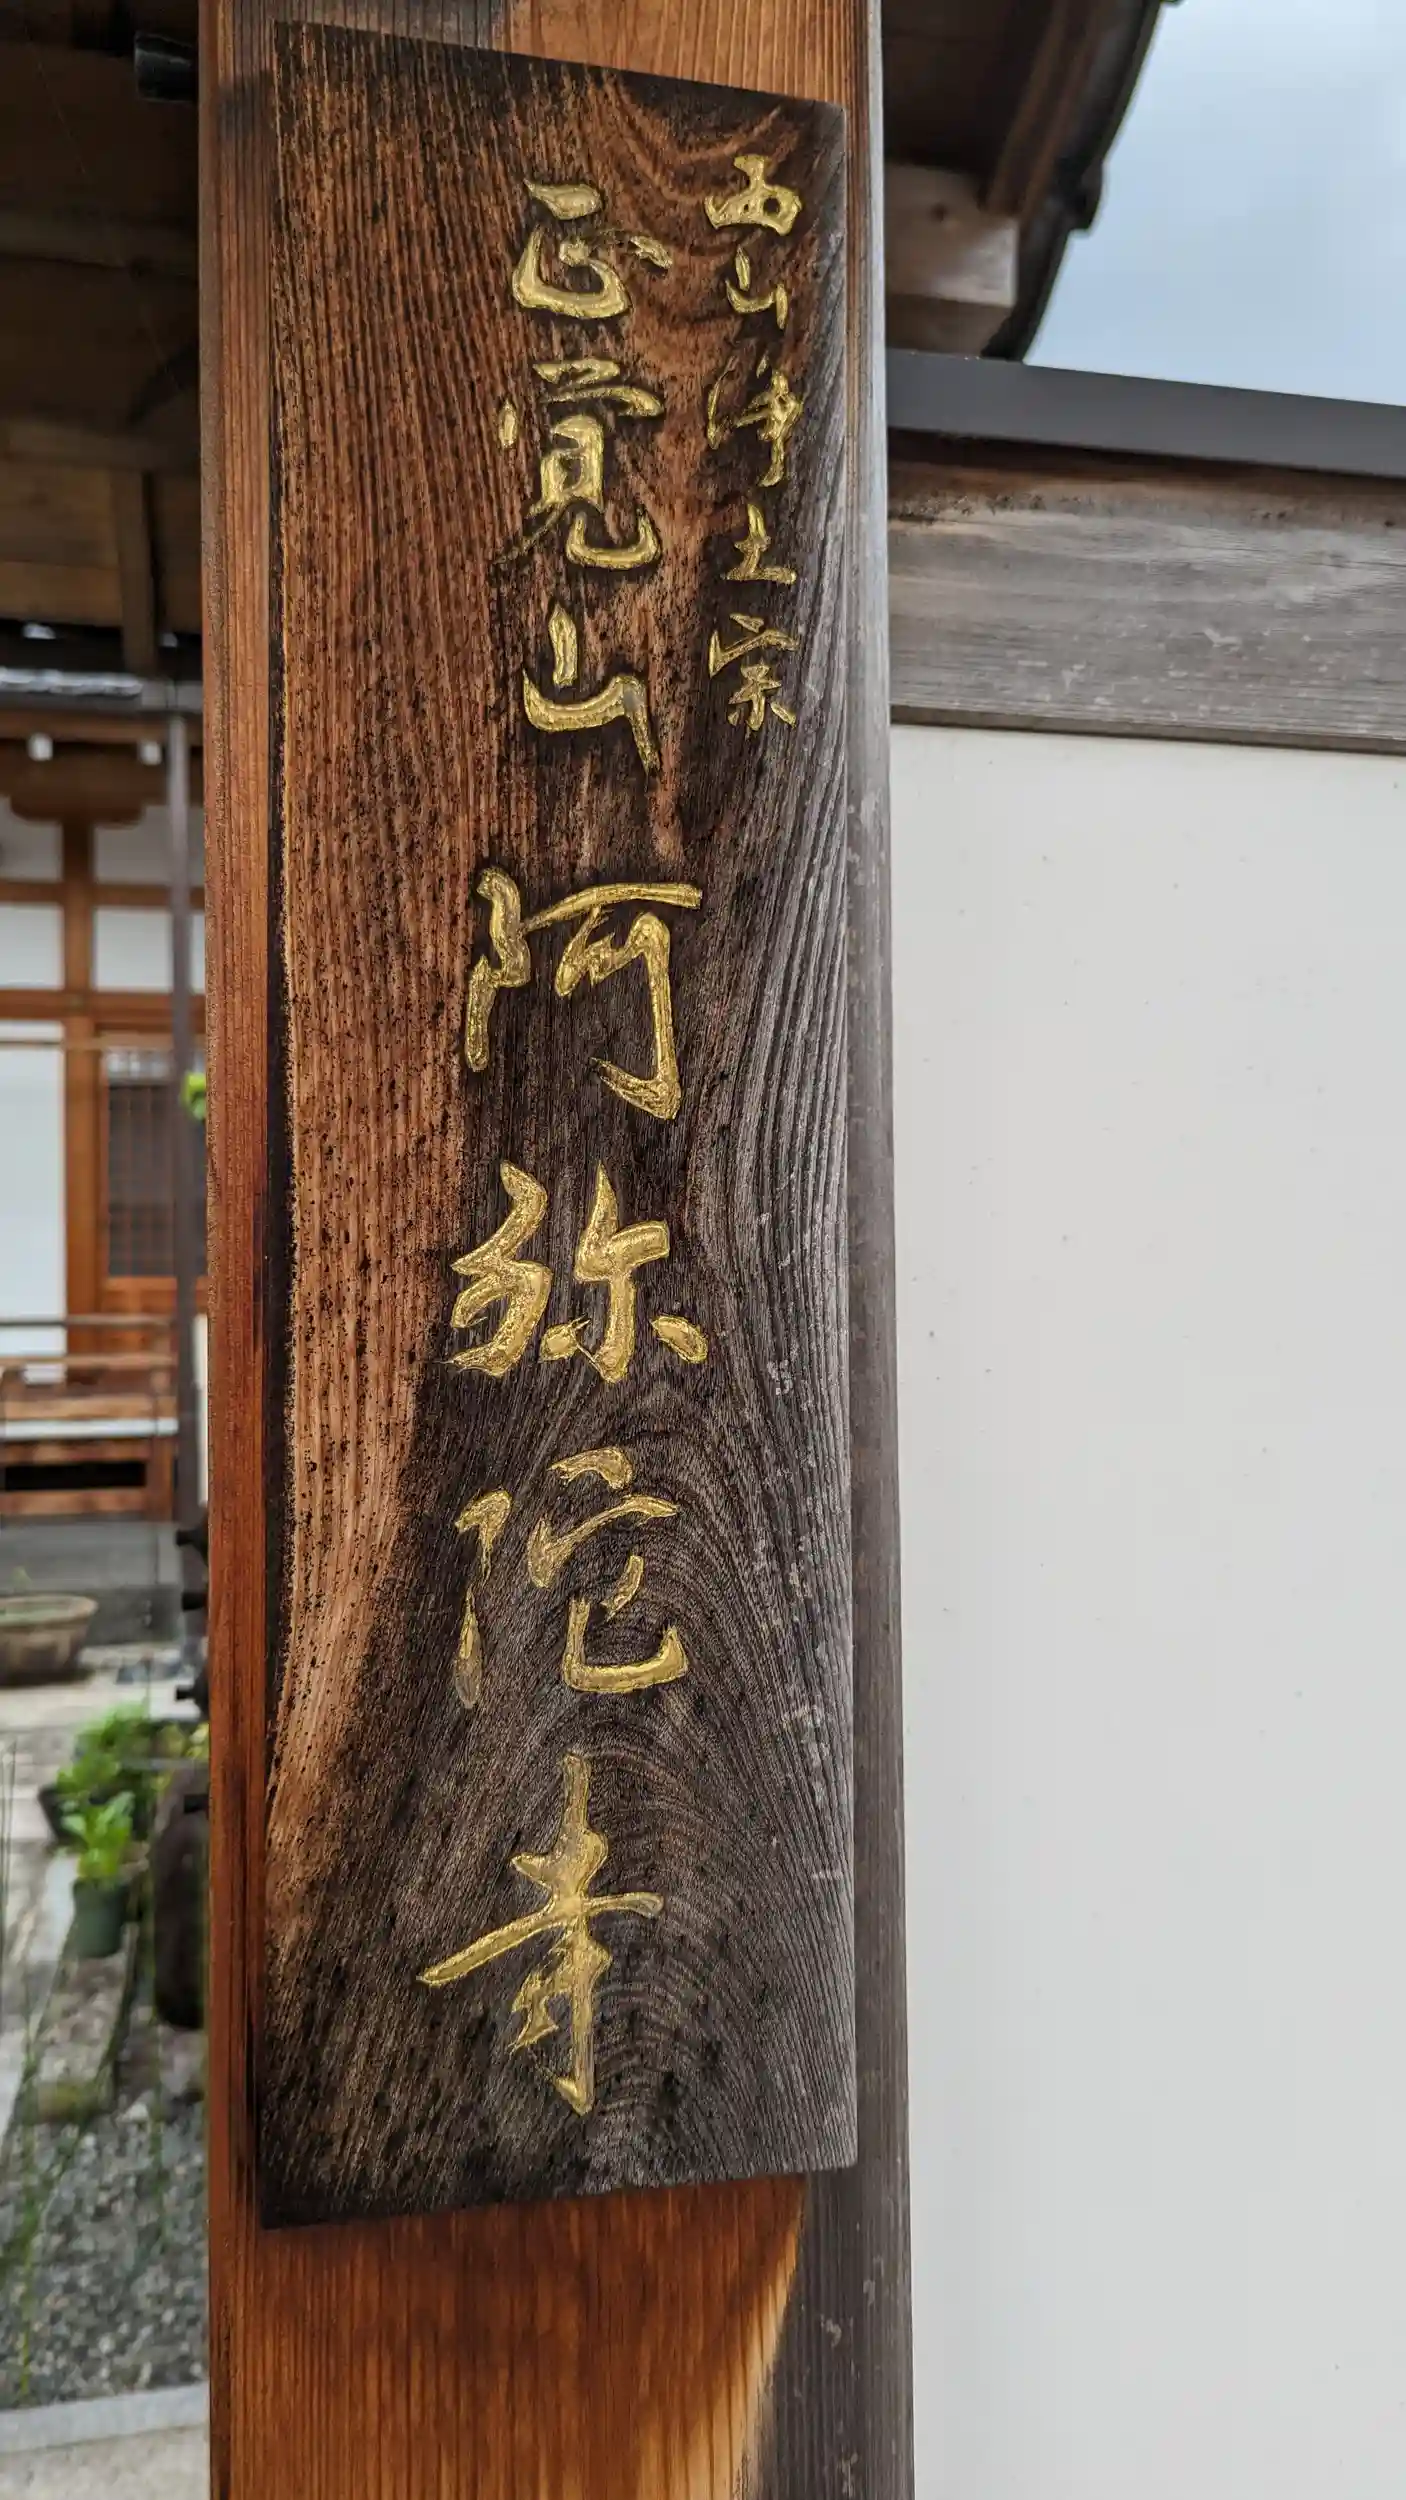 西山浄土宗
正覚山阿弥陀寺